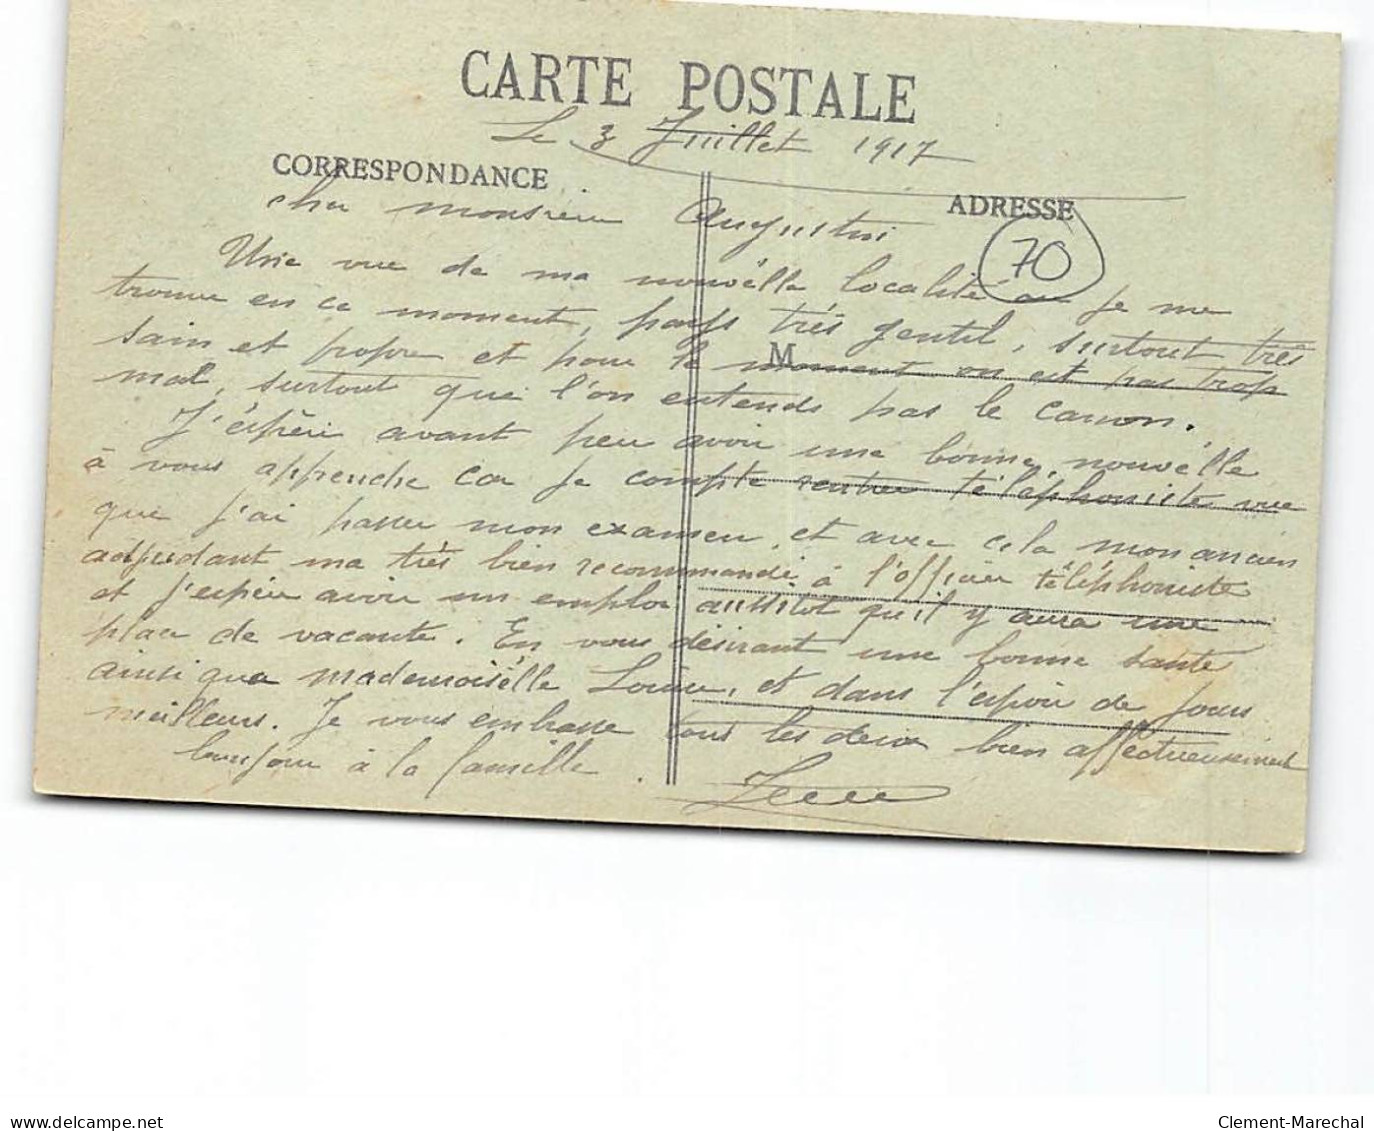 CARTE POSTALE
Le 3 Juillet 1917
CORRESPONDANCE
ADRESSE
70
cher monsieur Augustin
Une vue de ma nouvélle localité ou je me
trouve en ce moment, pays très gentil, surtout très
M
sain et propre et pour le moment on est pas trop
mal, surtout que l'on entends pas le canon.
J'éspère avant peu avoir une bonne nouvélle
à vous apprendre car je compte rentrer téléphoniste vue
que j'ai passer mon examen, et avec cela mon ancien
adjudant ma très bien recommandé à l'officier téléphoniste
et j'espère avoir un emploi aussitot qu'il y aura une
place de vacante. En vous désirant une bonne santé
ainsi que mademoisélle Louise, et dans l'espoir de jours
meilleurs. Je vous embrasse tous les deux bien afféctueusement
bonjour à la famille.
delcampe.net
Clement-Marechal